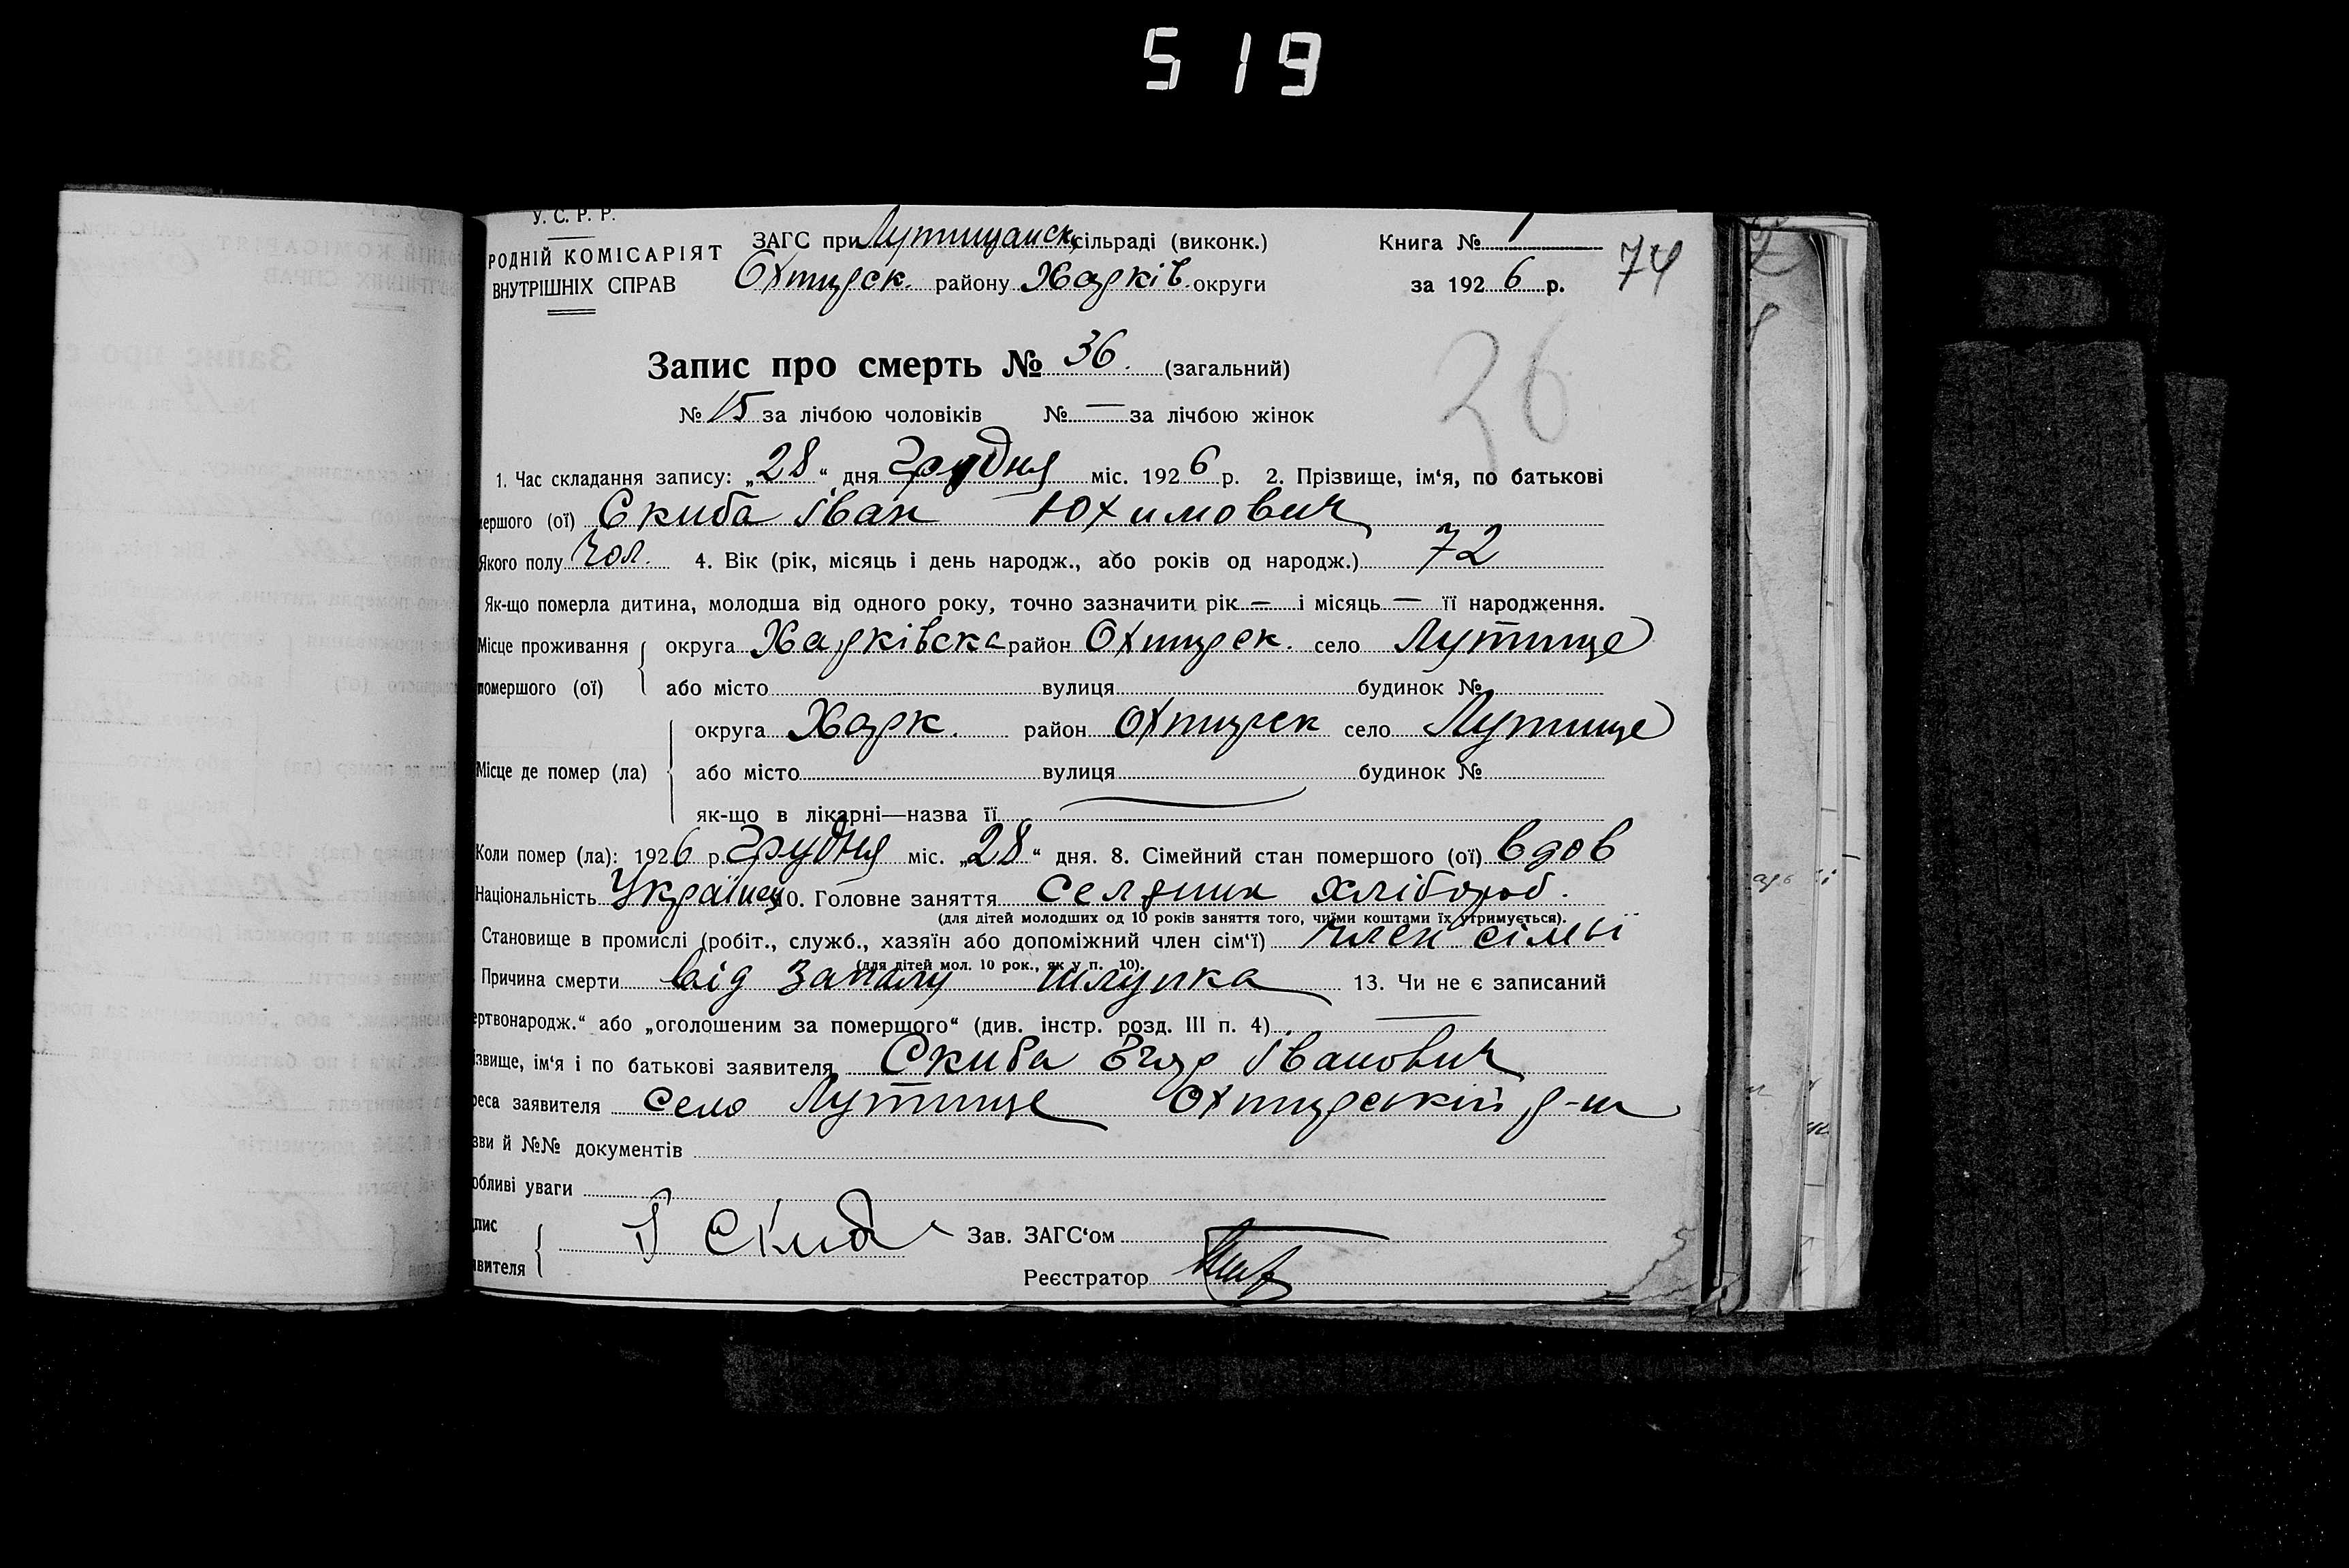 519
У. С. Р. Р.
РОДНІЙ КОМІСАРІЯТ
ВНУТРІШНІХ СПРАВ
ЗАГС при Лутищанск. сільраді (виконк.)
Охтирск. району Харків. округи
Книга № 1
за 1926 р.
74
Запис про смерть № 36. (загальний)
№ 15 за лічбою чоловіків № — за лічбою жінок
36
1. Час складання запису: „28“ дня Грудня міс. 1926 р. 2. Прізвище, ім‘я, по батькові
мершого (ої) Скиба Іван Юхимович
Якого полу Чол. 4. Вік (рік, місяць і день народж., або років од народж.) 72
Як-що померла дитина, молодша від одного року, точно зазначити рік — і місяць — її народження.
Місце проживання округа Харківска район Охтирск. село Лутище
помершого (ої) або місто вулиця будинок №
округа Харк. район Охтирск село Лутище
Місце де помер (ла) або місто вулиця будинок №
як-що в лікарні—назва її —
Коли помер (ла): 1926 р. Грудня міс. „28“ дня. 8. Сімейний стан помершого (ої) вдов
Національність Українец 10. Головне заняття селянин хлібороб.
(для дітей молодших од 10 років заняття того, чиїми коштами їх утримується).
Становище в промислі (робіт., служб., хазяїн або допоміжний член сім‘ї) член сімьї
(для дітей мол. 10 рок., як у п. 10).
Причина смерти від запалу шлунка 13. Чи не є записаний
ертвонародж.“ або „оголошеним за помершого“ (див. інстр. розд. III п. 4) —
ізвище, ім‘я і по батькові заявителя Скиба Егор Іванович
реса заявителя село Лутище Охтирський р-н
зви й №№ документів
обливі уваги
пис
явителя
Скиба
Зав. ЗАГС‘ом
Реєстратор